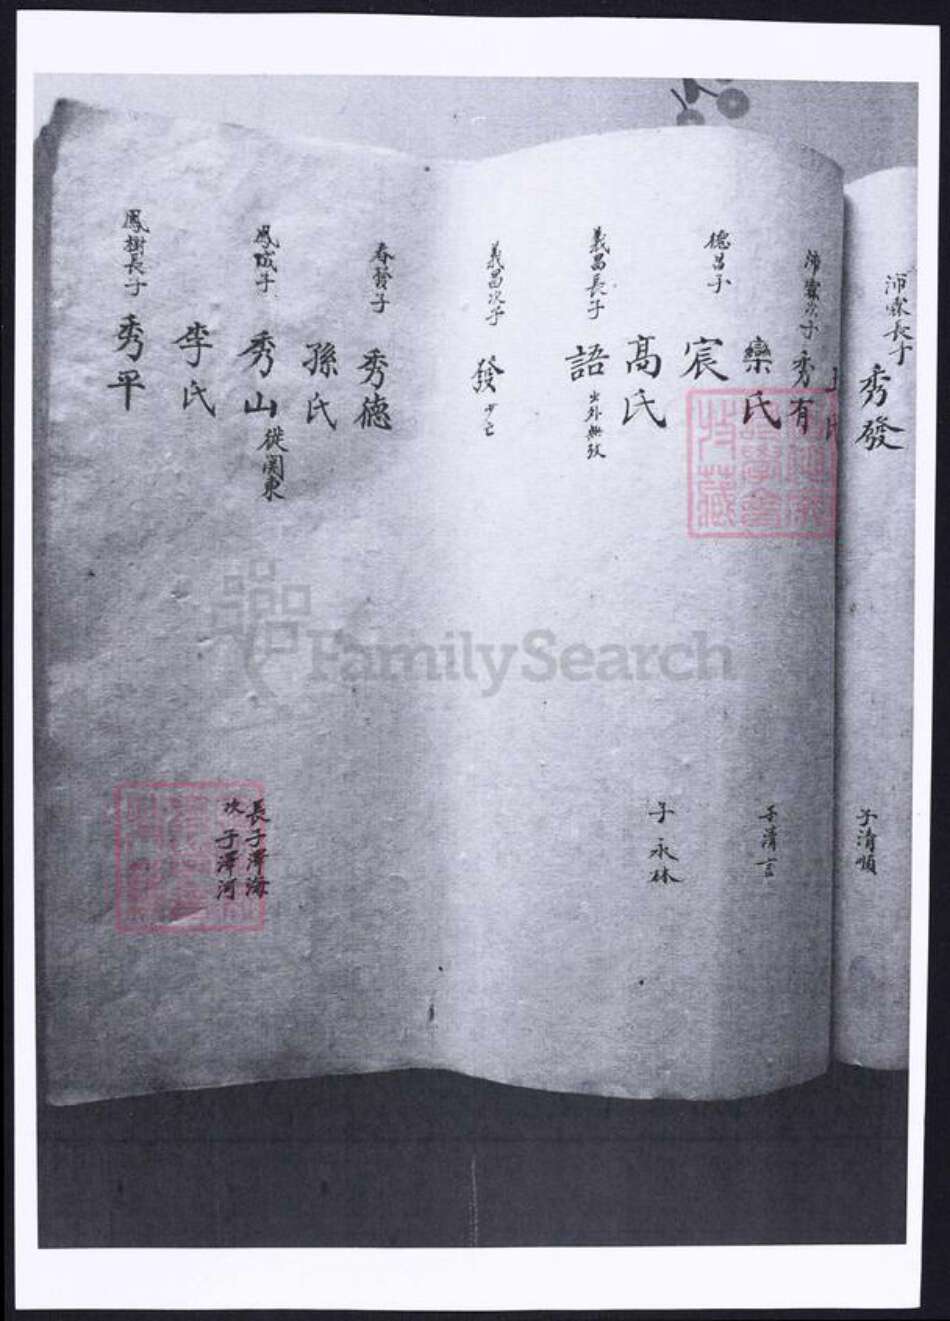 沛霖長子
秀發
子清順
沛霖次子
秀有
欒氏
子清言
德昌子
宸
高氏
子永林
義昌長子
語 出外無攷
義昌次子
發 少亡
春發子
秀德
孫氏
鳳成子
秀山 徙関東
李氏
長子澤海
次子澤河
鳳樹長子
秀平
FamilySearch